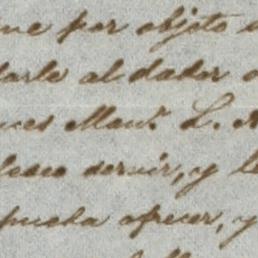 me por objeto
darle al dador
ues Man.l L.
deseo servir, y
pueda ofrecer, y